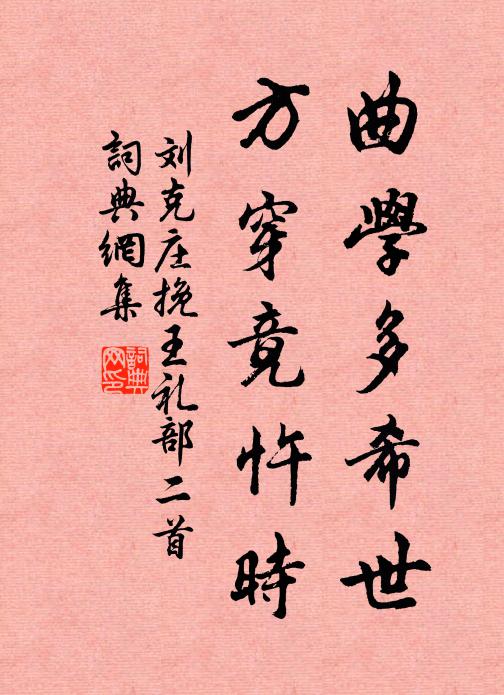 曲學多希世
方穿竟忤時
刘克庄挽王礼部二首
詞典網集
詞典网印